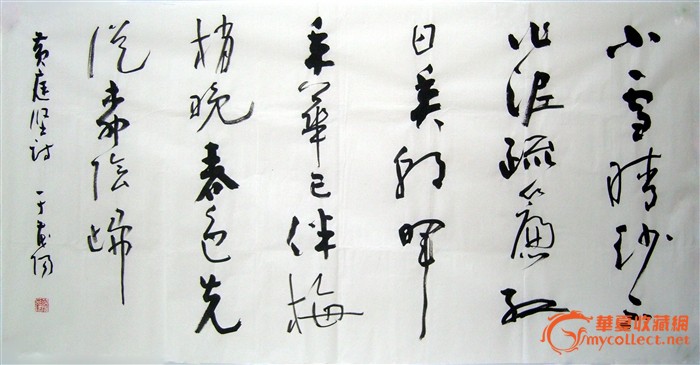 小雪晴沙不
作泥疏簾紅
日弄朝暉
年華已伴梅
梢晚春色先
從草際歸
黃庭堅詩 于
華夏收藏網
mycollect.net